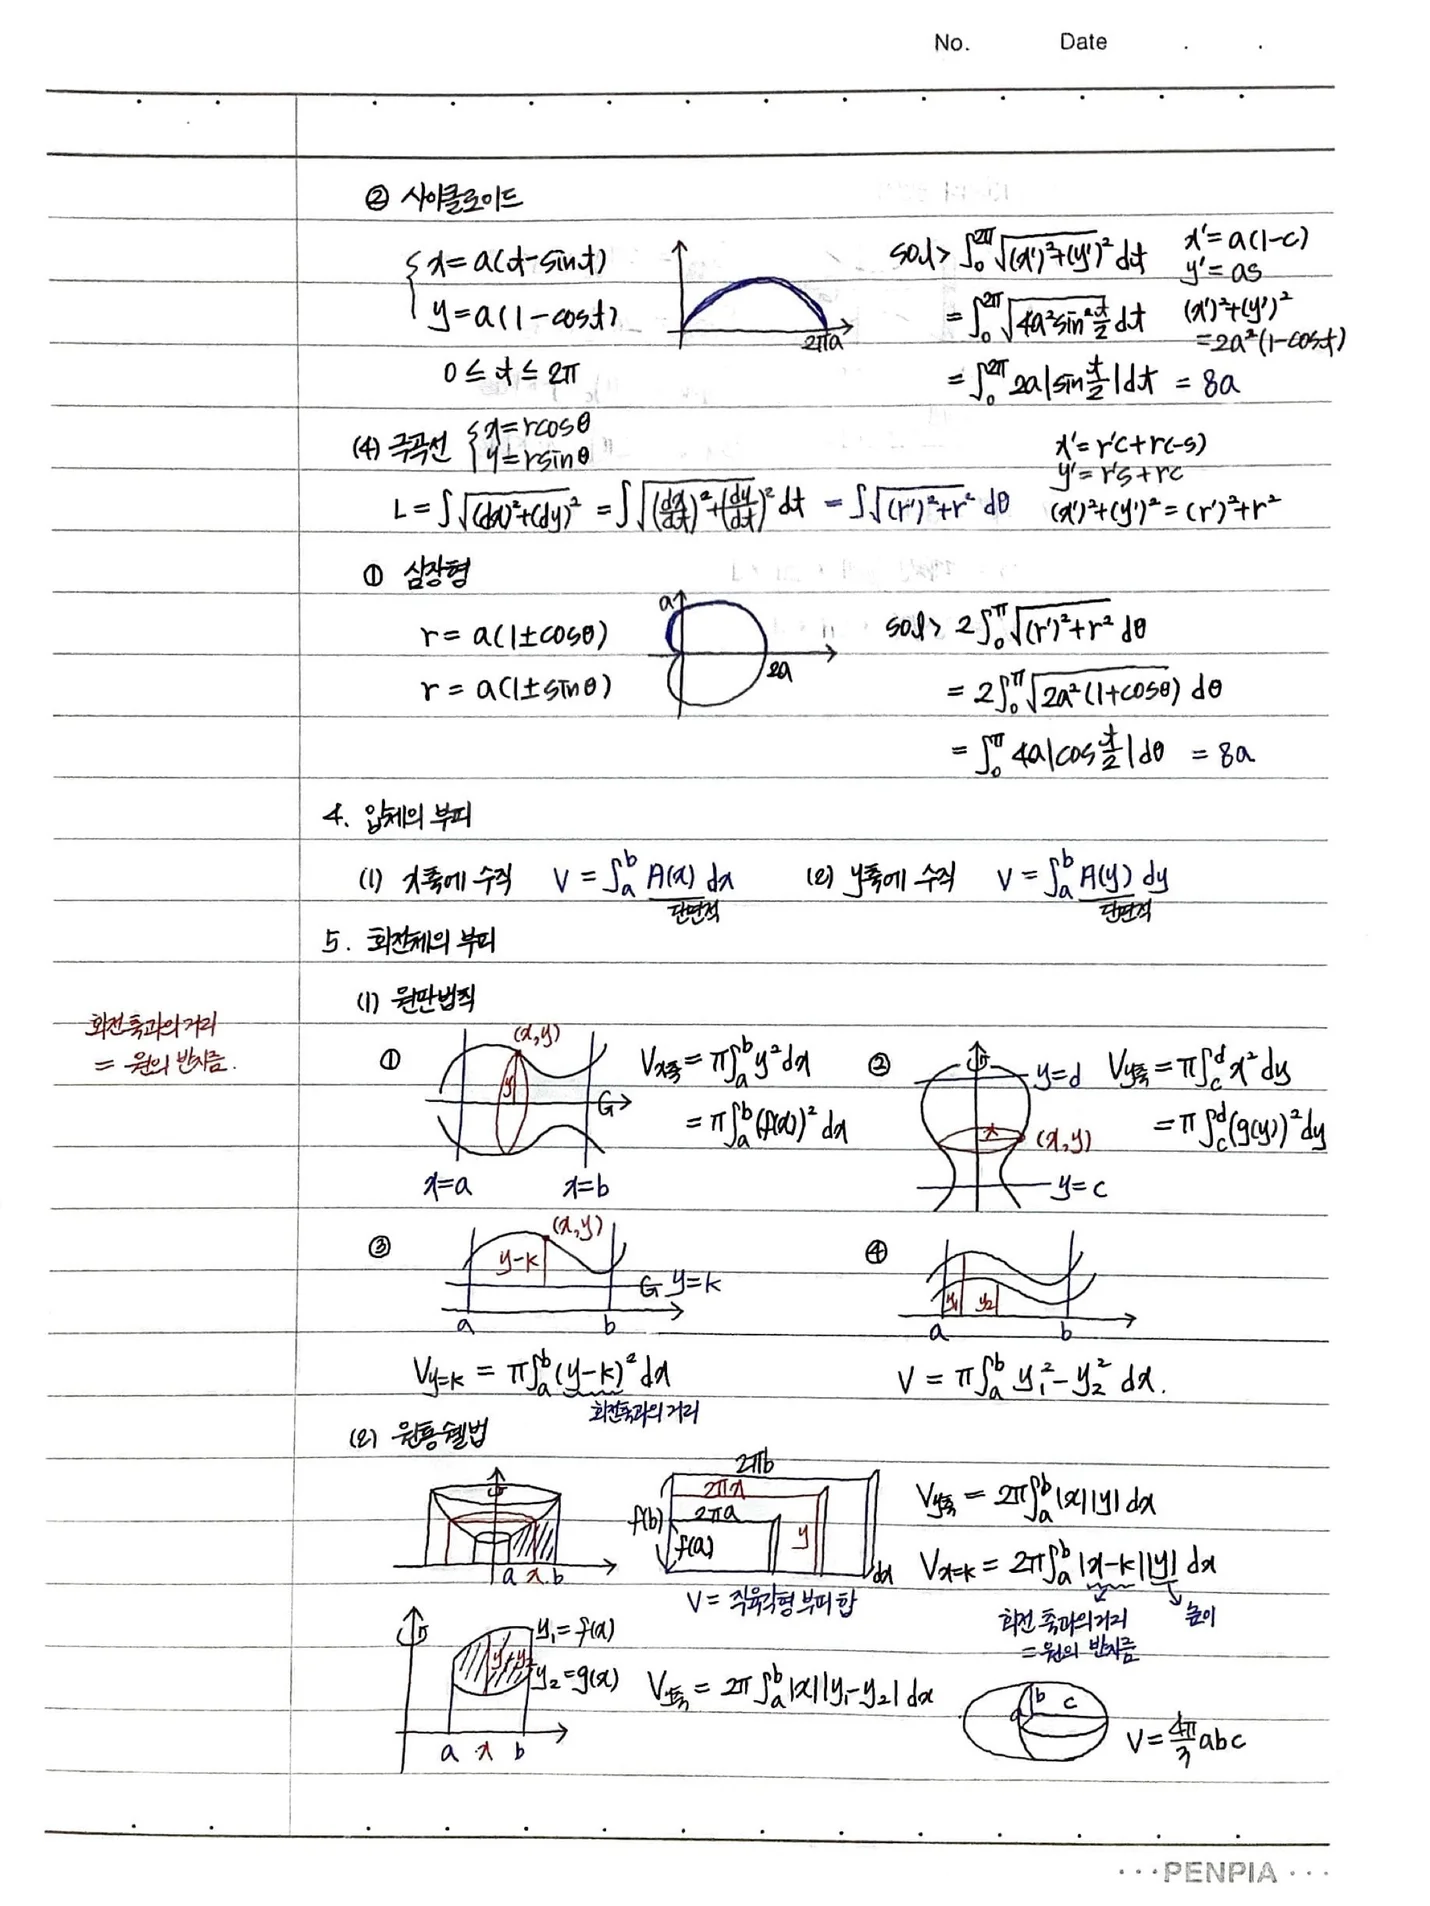 No. Date
② 사이클로이드
x = a(t-sint)
y = a(1-cost)
0 ≤ t ≤ 2π
2πa
sol> ∫₀^2π √((x')²+(y')²) dt
= ∫₀^2π √(4a²sin²(t/2)) dt
= ∫₀^2π 2a|sin(t/2)|dt = 8a
x' = a(1-c)
y' = as
(x')²+(y')²
=2a²(1-cost)
(4) 극곡선 { x=rcosθ
y=rsinθ
x' = r'c+r(-s)
y' = r's+rc
L = ∫√((dx)²+(dy)²) = ∫√((dx/dt)²+(dy/dt)²) dt = ∫√((r')²+r²) dθ
(x')²+(y')² = (r')²+r²
① 심장형
r = a(1±cosθ)
r = a(1±sinθ)
a
2a
sol> 2∫₀^π √((r')²+r²) dθ
= 2∫₀^π √(2a²(1+cosθ)) dθ
= ∫₀^π 4a|cos(t/2)|dθ = 8a
4. 입체의 부피
(1) x축에 수직 V = ∫ₐ^b A(x) dx
단면적
(2) y축에 수직 V = ∫ₐ^b A(y) dy
단면적
5. 회전체의 부피
(1) 원판법칙
회전축과의 거리
= 원의 반지름.
①
(x,y)
y
x=a
x=b
Vx축 = π∫ₐ^b y²dx
= π∫ₐ^b (f(x))² dx
②
y=d
x
(x,y)
y=c
Vy축 = π∫c^d x² dy
= π∫c^d (g(y))² dy
③
(x,y)
y-k
y=k
a
b
Vy=k = π∫ₐ^b (y-k)² dx
회전축과의 거리
④
y₁
y₂
a
b
V = π∫ₐ^b y₁²-y₂² dx.
(2) 원통쉘법
a x b
2πb
2πx
2πa
f(b)
f(a)
y
dx
V = 직육각형 부피 합
Vy축 = 2π∫ₐ^b |x||y| dx
Vx=k = 2π∫ₐ^b |x-k||y| dx
회전축과의 거리
= 원의 반지름
높이
y₁=f(x)
y₁-y₂
y₂=g(x)
a x b
Vy축 = 2π∫ₐ^b |x||y₁-y₂| dx
a
b
c
V = 4π/3 abc
···PENPIA···